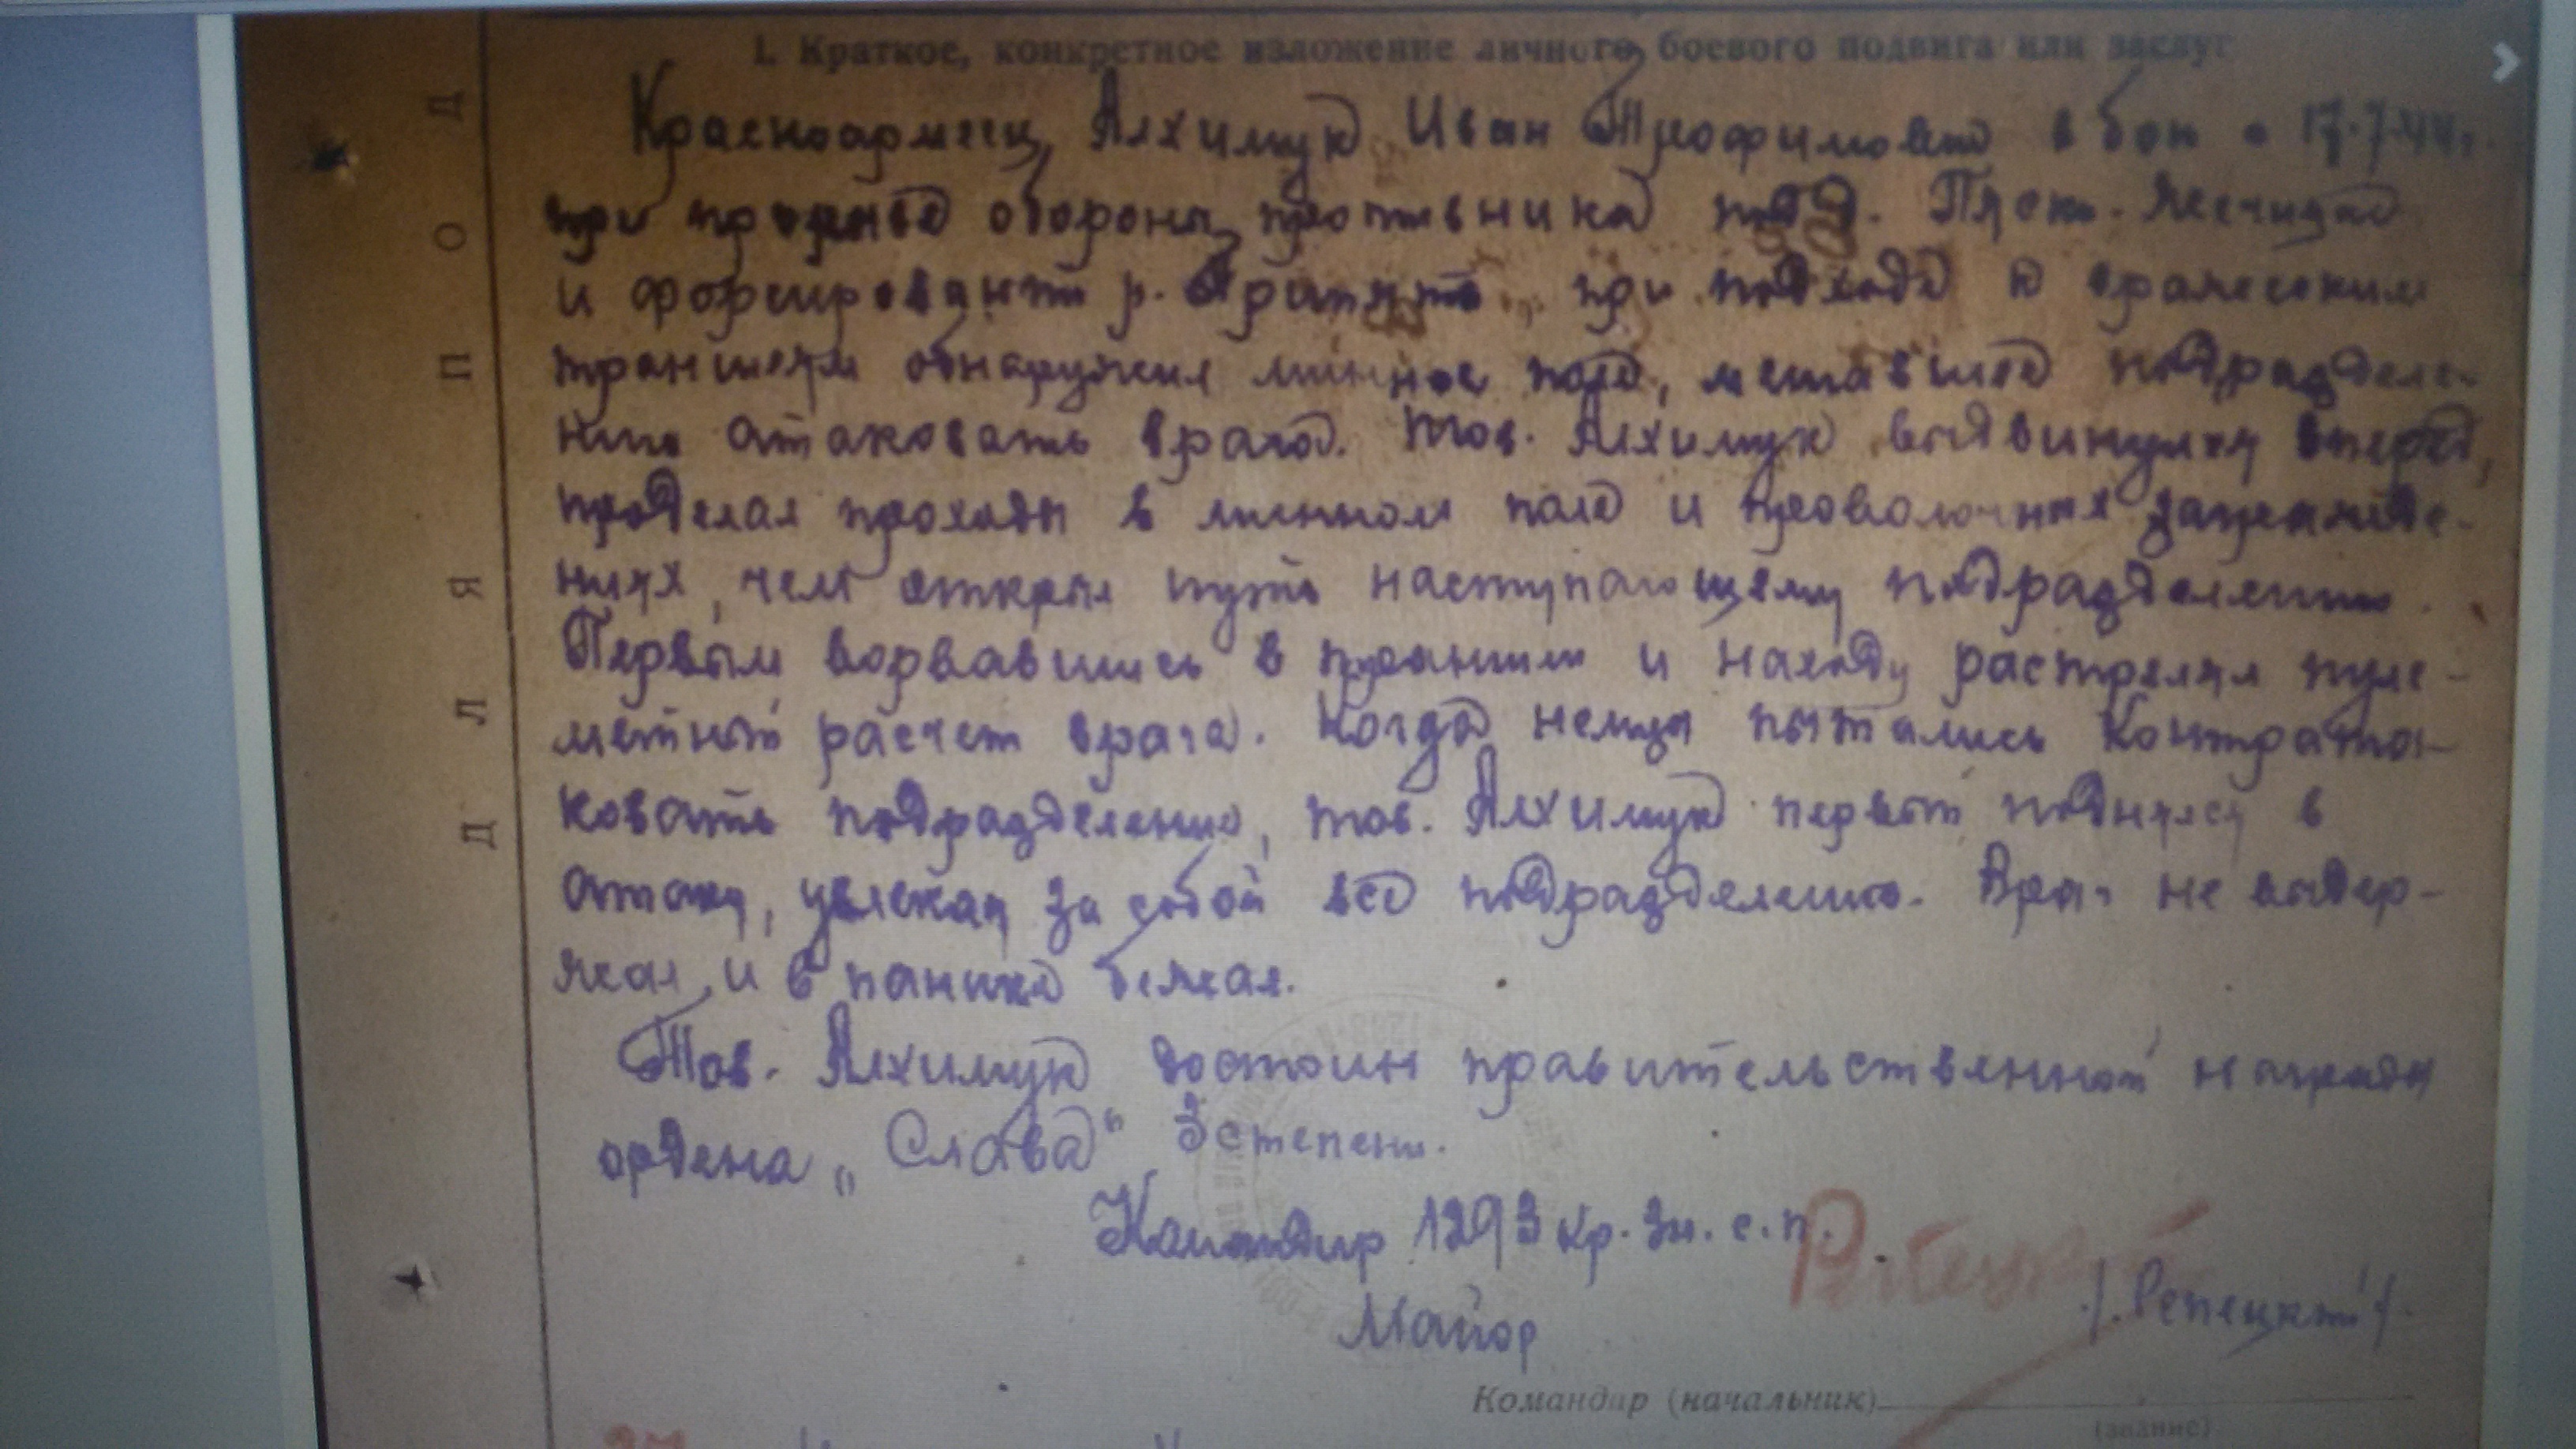 I. Краткое, конкретное изложение личного боевого подвига или заслуг
Красноармеец Алхимук Иван Трофимович в бою 17.7.44г.
при прорыве обороны противника под
и форсировании р. Припять при подходе к вражеским
траншеям обнаружил минное поле, мешавшее подразделе-
нию атаковать врага. Тов. Алхимук выдвинулся вперед,
проделал проходы в минном поле и проволочных загражде-
ниях, чем открыл путь наступающему подразделению.
Первым ворвавшись в траншею и находу растрелял пуле-
метный расчет врага. Когда немцы пытались контрата-
ковать подразделение, тов. Алхимук первый поднялся в
атаку, увлекая за собой всё подразделение. Враг не выдер-
жал и в панике бежал.
Тов. Алхимук достоин правительственной награды
ордена „Слава" 3 степени.
Командир 1293 кр. зн. с. п.
Майор
/Репецкий/
Командир (начальник)
(звание)
ДЛЯ ПОД